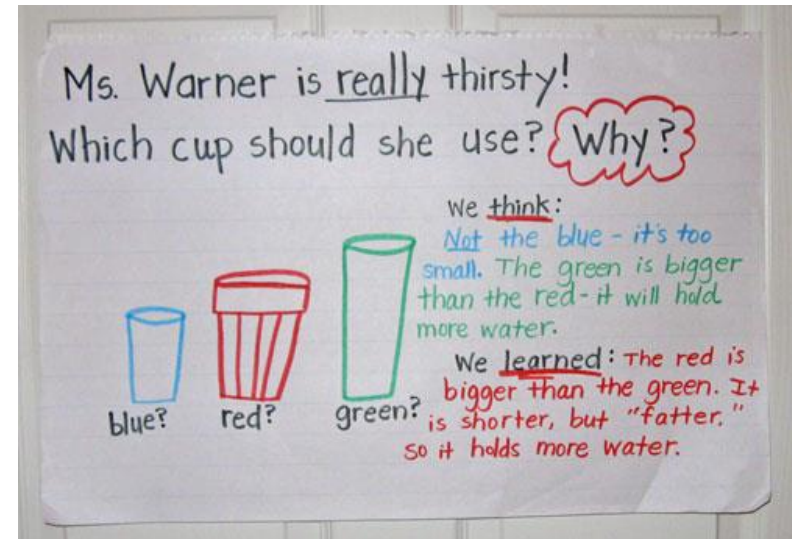 Ms. Warner is really thirsty!
Which cup should she use? Why?
We think:
Not the blue - it's too
small. The green is bigger
than the red - it will hold
more water.
We learned: The red is
bigger than the green. It
is shorter, but "fatter."
so it holds more water.
blue? red? green?